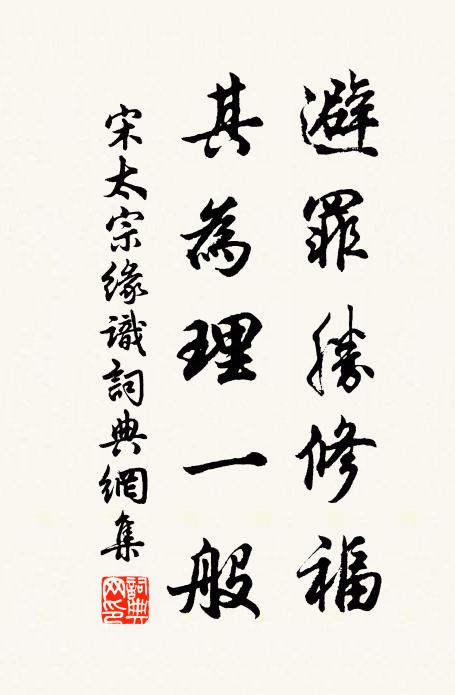 避罪勝修福
其為理一般
宋太宗緣識詞典網集
詞典网印